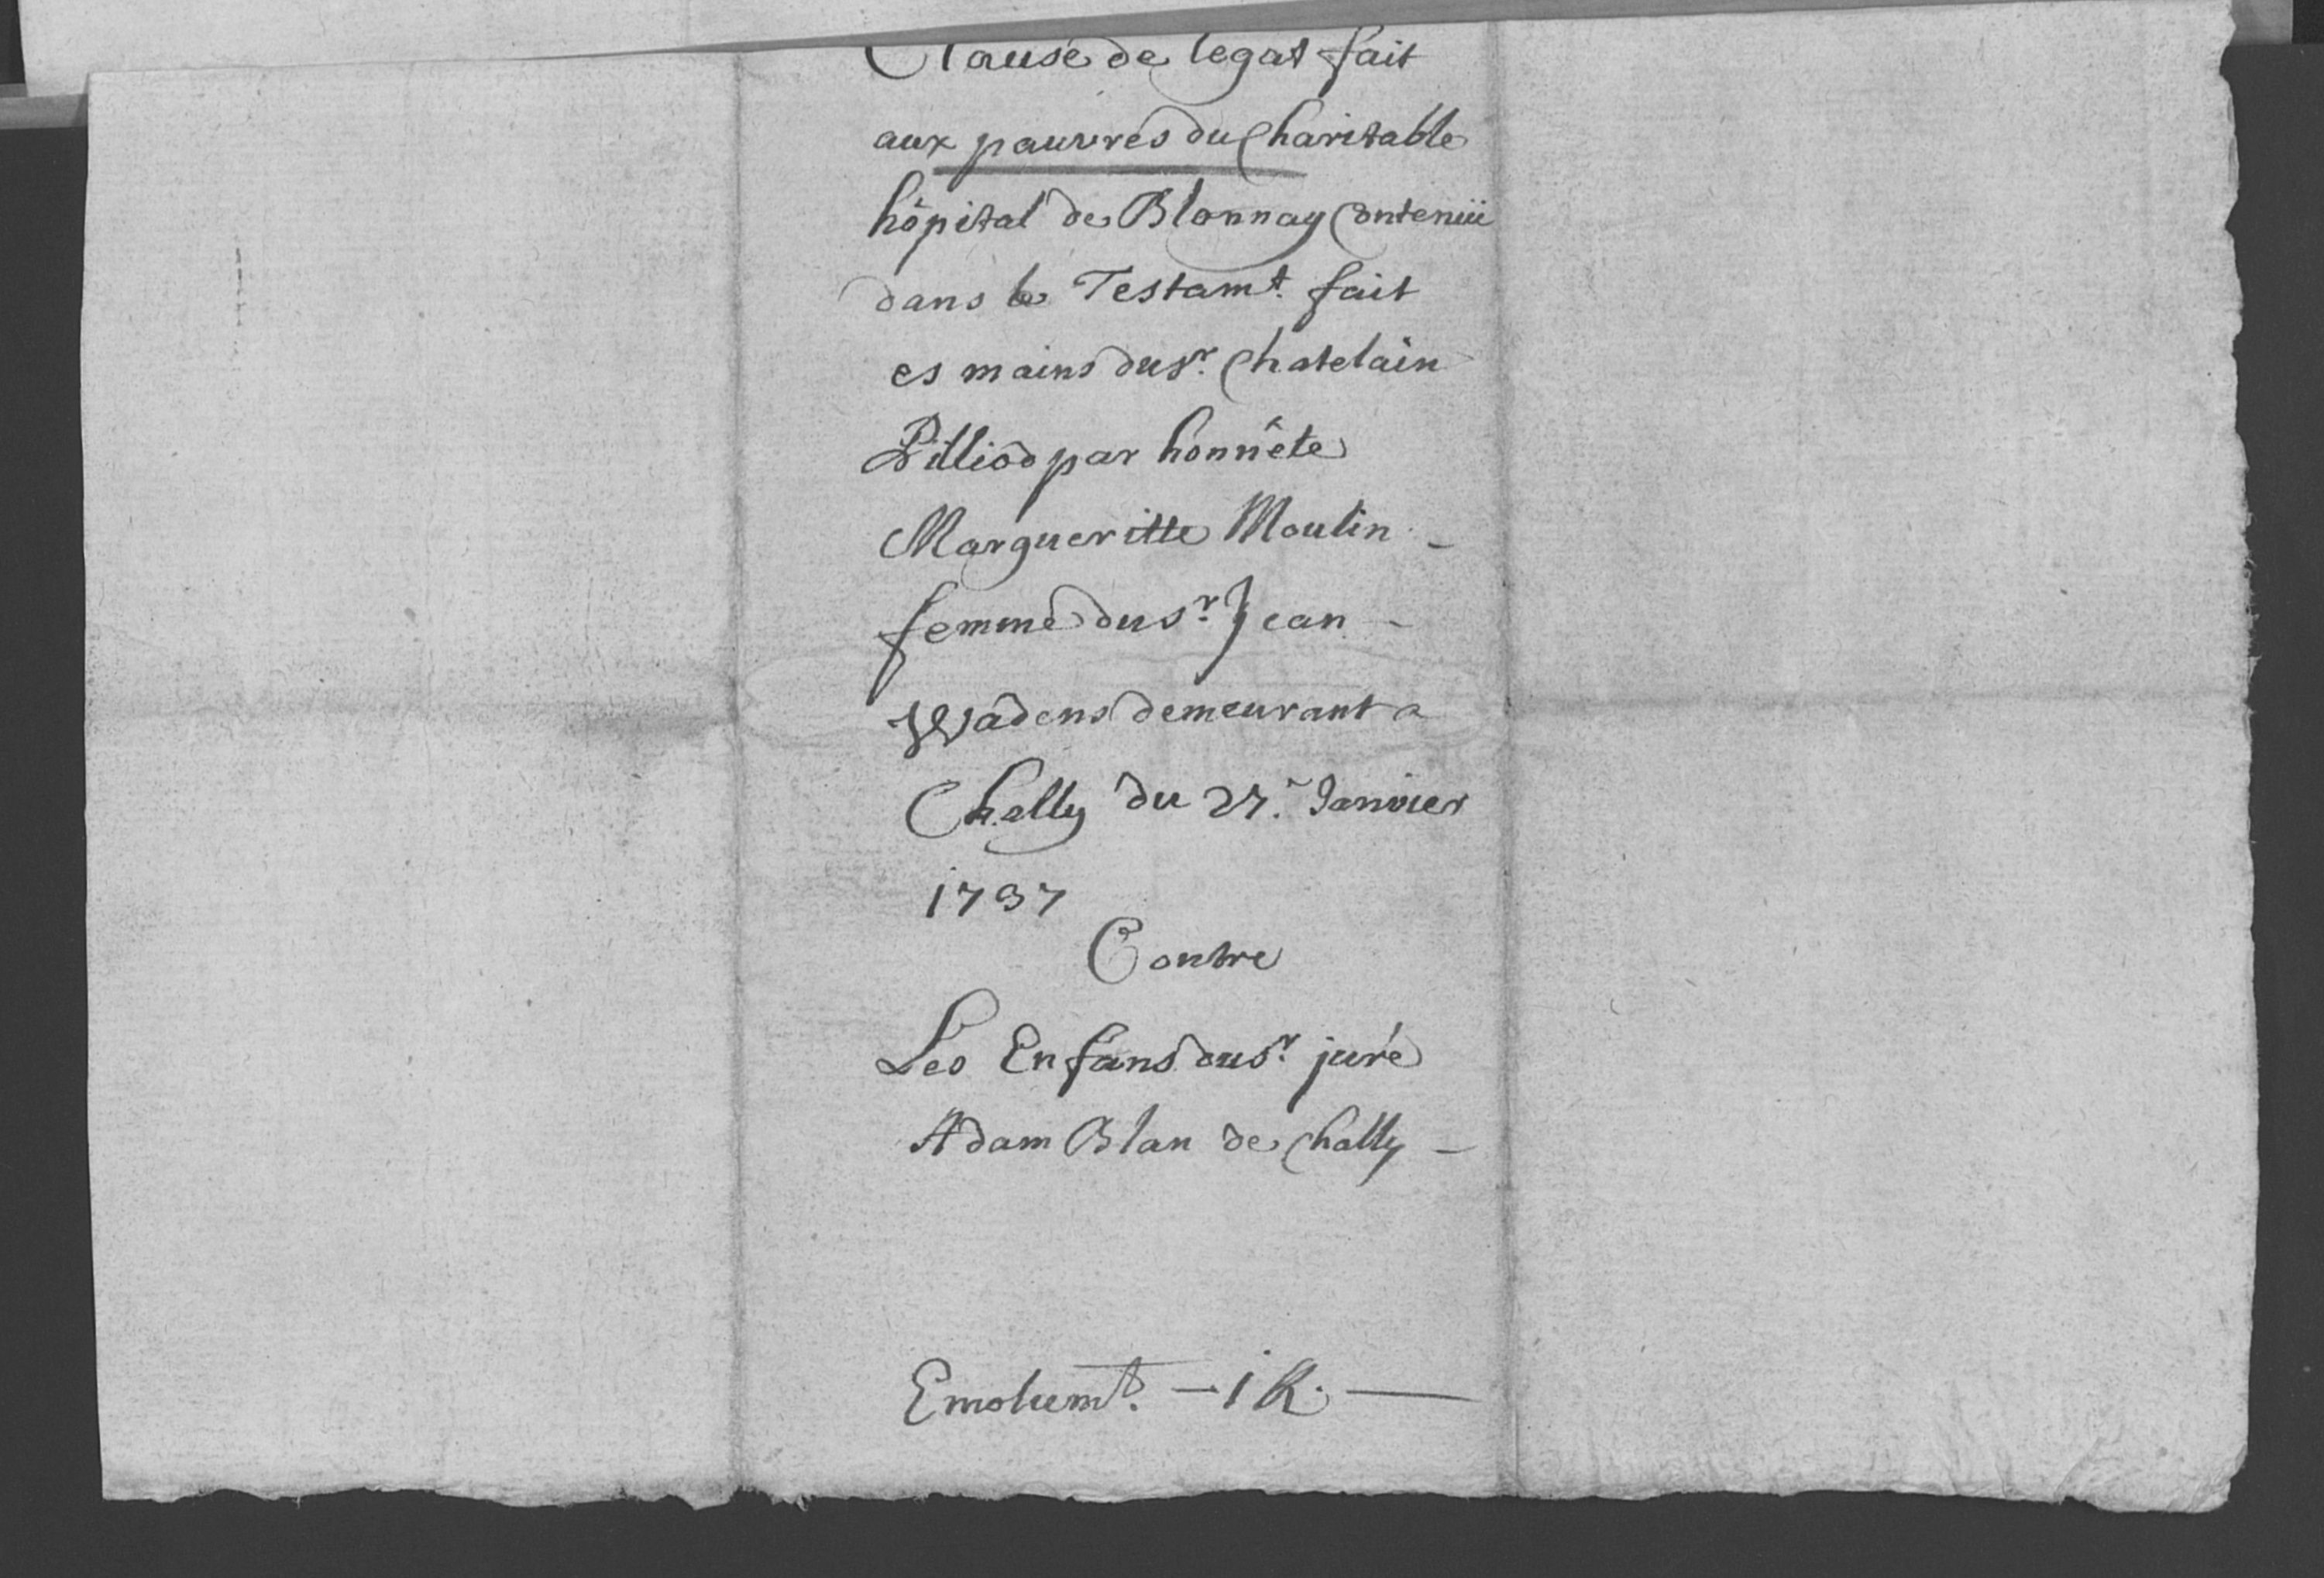 Clause de legat fait
aux pauvres du Charitable
hôpital de Blonnay Contenüe
dans le Testamt. fait
es mains du sr. Chatelain
Pilliod par honnête
Margueritte Moulin -
femme du sr. Jean -
Wadens demeurant a
Chally du 27. Janvier
1737
Contre
Les Enfans du sr. juré
Adam Blan de Chally -
Emolumt. - 1 R. -